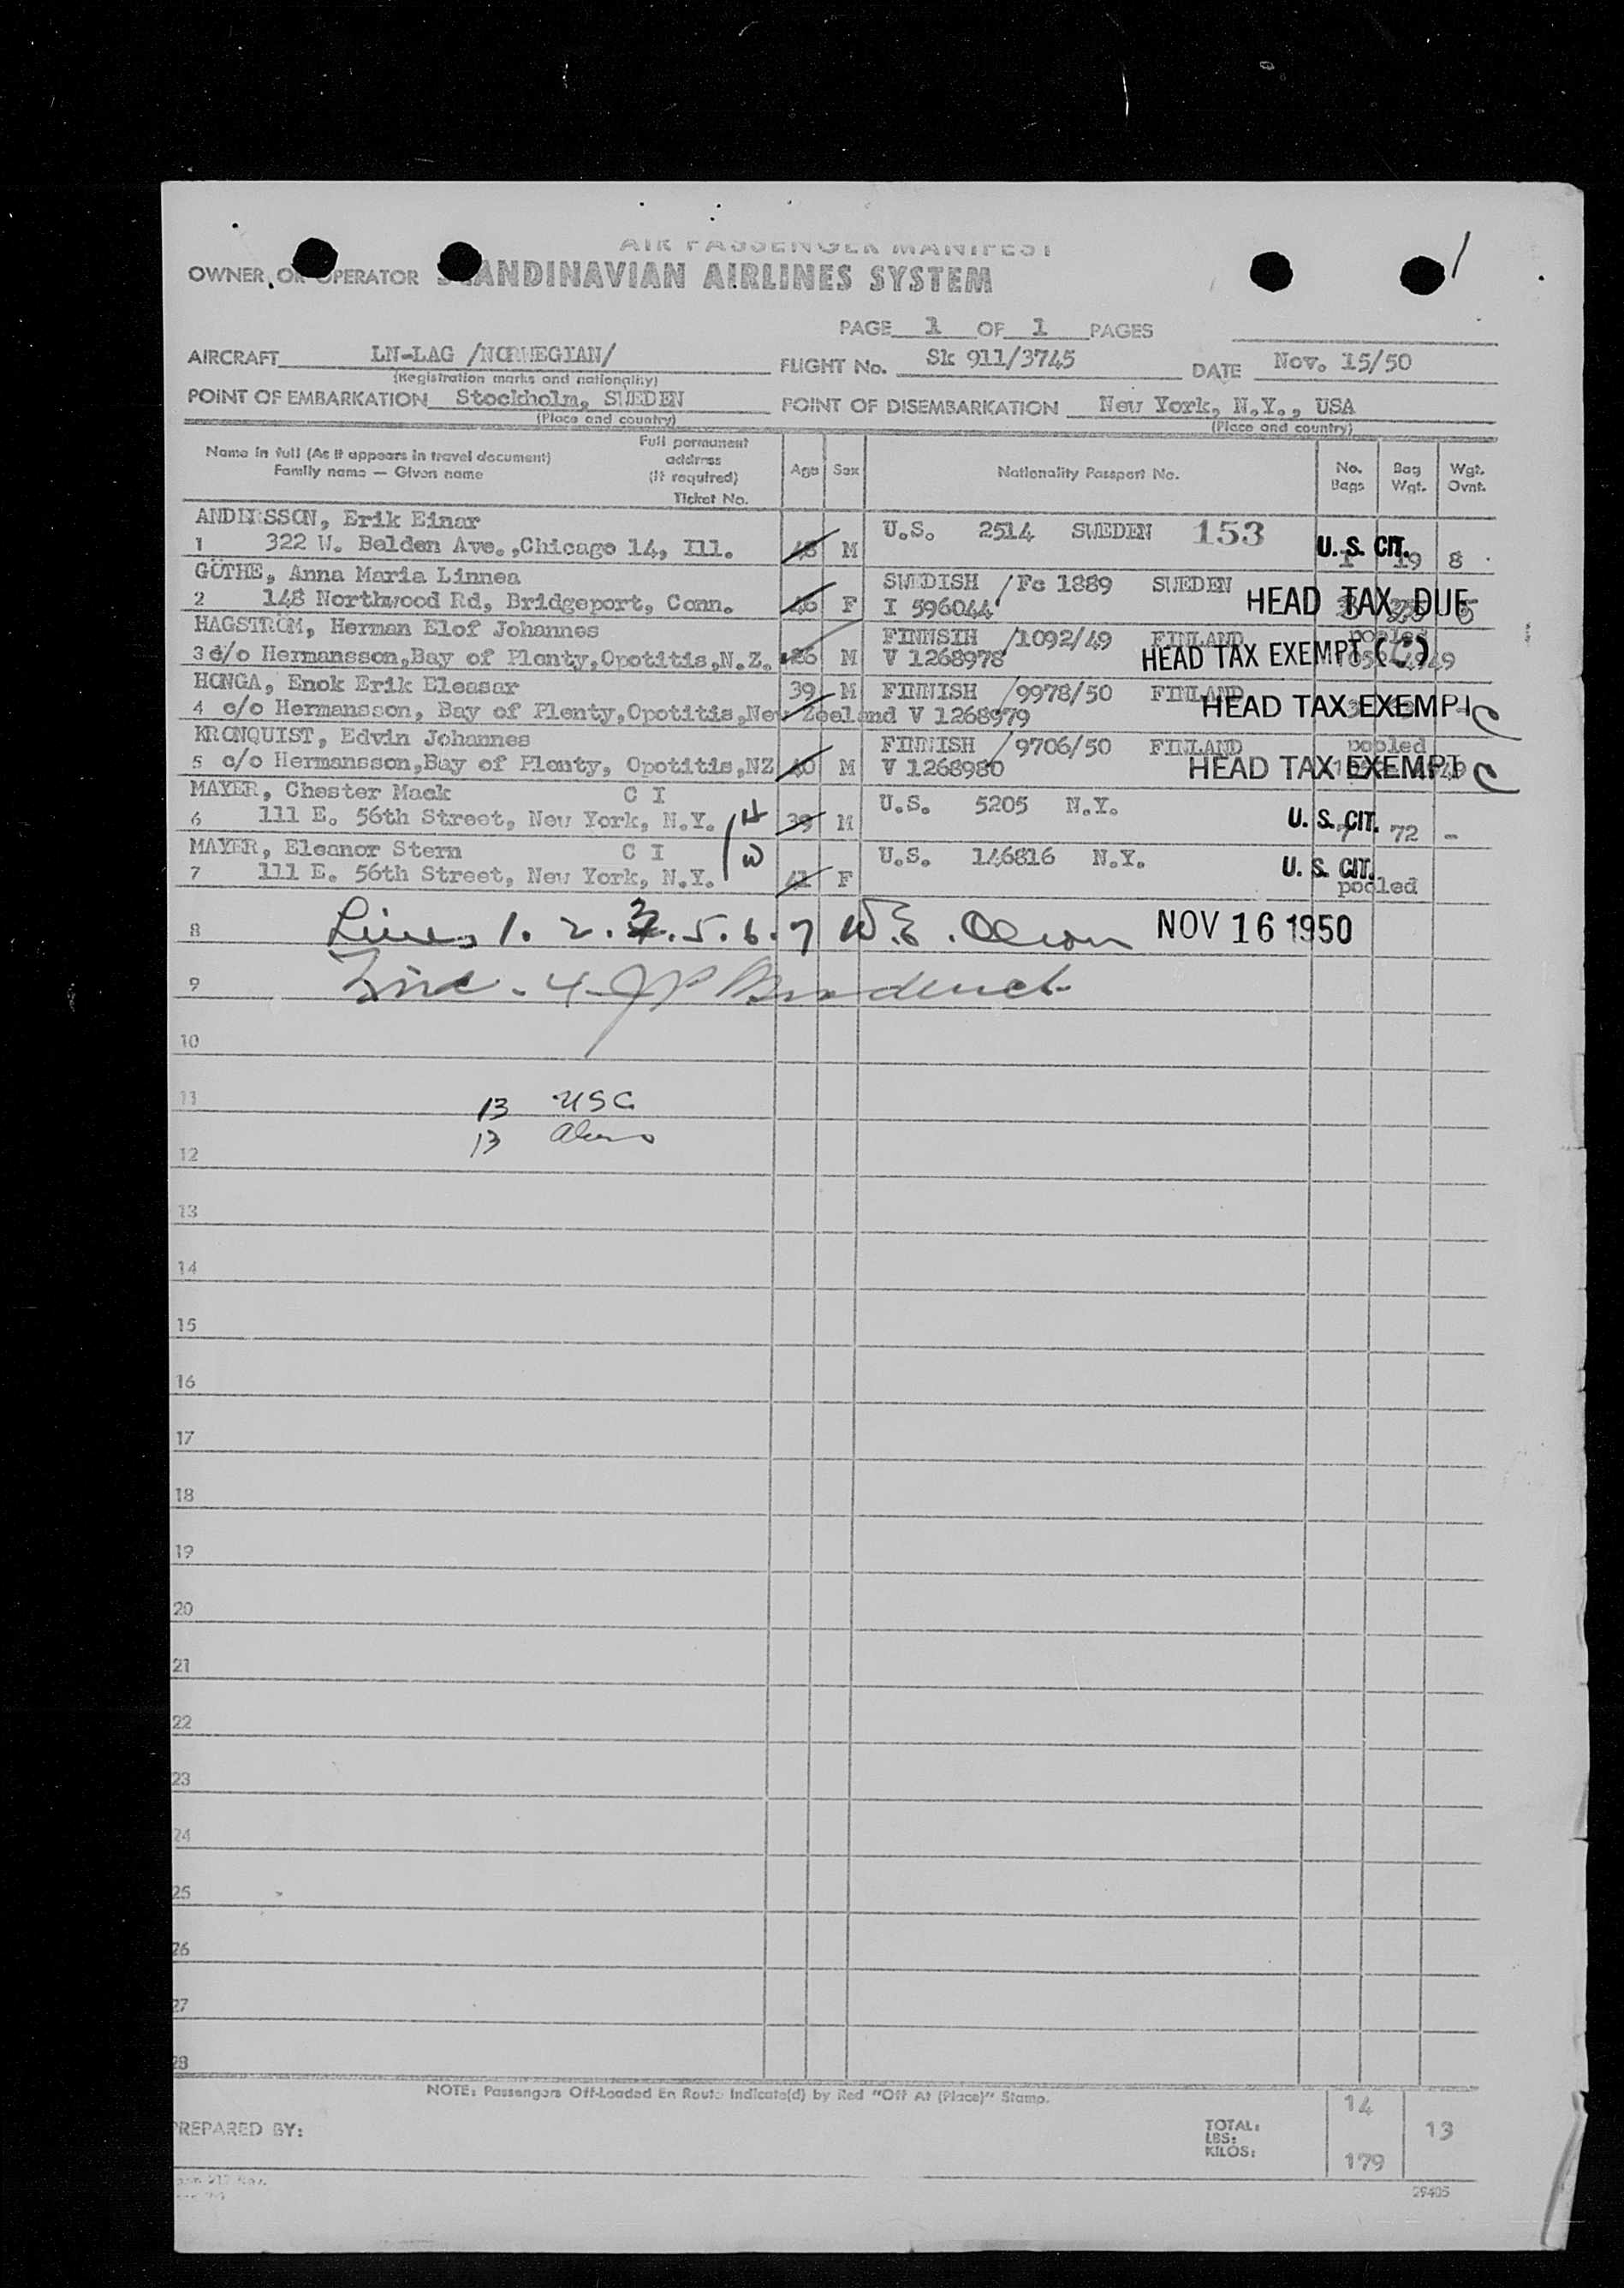 AIR PASSENGER MANIFEST
OWNER OR OPERATOR SCANDINAVIAN AIRLINES SYSTEM
PAGE 1 OF 1 PAGES
AIRCRAFT LN-LAG /NORWEGIAN/ FLIGHT No. Sk 911/3745 DATE Nov. 15/50
(Registration marks and nationality)
POINT OF EMBARKATION Stockholm, SWEDEN POINT OF DISEMBARKATION New York, N.Y., USA
(Place and country) (Place and country)
Name in full (As it appears in travel document) Full permanent address (if required) Age Sex Nationality Passport No. No. Bags Bag Wgt. Wgt. Ovnt.
Family name — Given name Ticket No.
ANDERSSON, Erik Einar U.S. 2514 SWEDEN 153
1 322 W. Belden Ave.,Chicago 14, Ill. 48 M U. S. CIT. 1 19 8
GÖTHE, Anna Maria Linnea SWEDISH / Fc 1889 SWEDEN
2 148 Northwood Rd, Bridgeport, Conn. F I 596044 HEAD TAX DUE
HAGSTRÖM, Herman Elof Johannes FINNSIH /1092/49 FINLAND pooled
3 c/o Hermansson,Bay of Plenty,Opotitis,N.Z. 26 M V 1268978 HEAD TAX EXEMPT (C)
HONGA, Enok Erik Eleasar 39 M FINNISH /9978/50 FINLAND
4 c/o Hermansson, Bay of Plenty,Opotitis,New Zeeland V 1268979 HEAD TAX EXEMPT C
KRONQUIST, Edvin Johannes FINNISH /9706/50 FINLAND pooled
5 c/o Hermansson,Bay of Plenty, Opotitis,NZ 40 M V 1268980 HEAD TAX EXEMPT C
MAYER, Chester Mack C I U.S. 5205 N.Y.
6 111 E. 56th Street, New York, N.Y. H 39 M U. S. CIT. 7 72 -
MAYER, Eleanor Stern C I W U.S. 146816 N.Y.
7 111 E. 56th Street, New York, N.Y. 41 F U. S. CIT. pooled
8 Lines 1. 2. 3. 5. 6. 7 W.E. Olson NOV 16 1950
9 Line - 4 - JP
10
11 13 USC
12 13 Aliens
13
14
15
16
17
18
19
20
21
22
23
24
25
26
27
28
NOTE: Passengers Off-Loaded En Route Indicate(d) by Red "Off At (Place)" Stamp.
PREPARED BY: TOTAL: 14 13
LBS:
KILOS: 179
29405